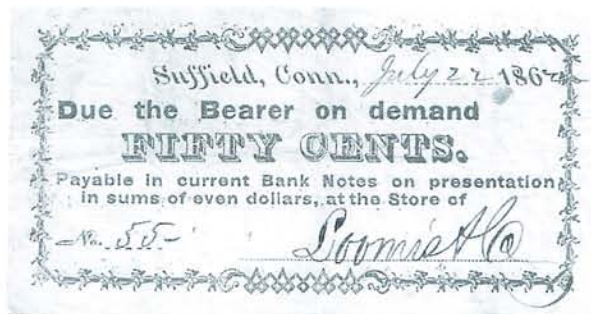 Suffield, Conn., July 22 1862
Due the Bearer on demand
FIFTY CENTS.
Payable in current Bank Notes on presentation
in sums of even dollars, at the Store of
No. 55- Loomis & Co